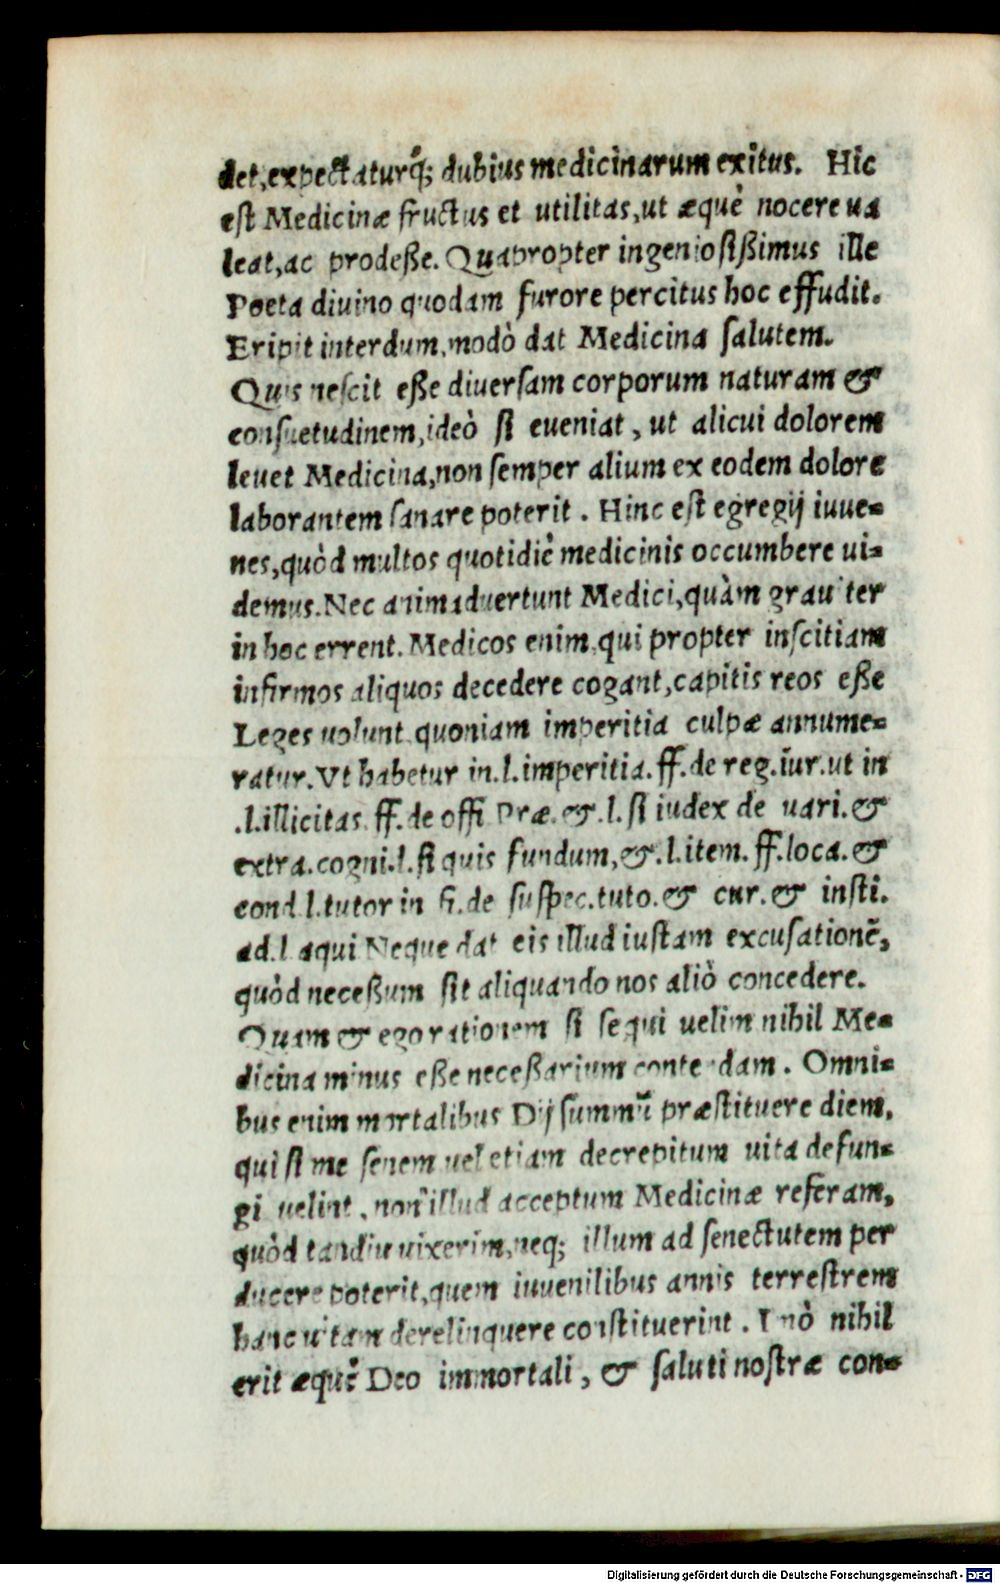 det, expectaturq́; dubius medicinarum exitus. Hic
est Medicinæ fructus et utilitas, ut æquè nocere ua
leat, ac prodeße. Quapropter ingeniosißimus ille
Poeta diuino quodam furore percitus hoc effudit.
Eripit interdum, modò dat Medicina salutem.
Quis nescit eße diuersam corporum naturam &
consuetudinem, ideò si eueniat, ut alicui dolorem
leuet Medicina, non semper alium ex eodem dolore
laborantem sanare poterit. Hinc est egregij iuue=
nes, quòd multos quotidiè medicinis occumbere ui=
demus. Nec animaduertunt Medici, quàm grauiter
in hoc errent. Medicos enim, qui propter inscitiam
infirmos aliquos decedere cogant, capitis reos eße
Leges uolunt, quoniam imperitia culpæ annume=
ratur. Vt habetur in. l. imperitia. ff. de reg. iur. ut in
.l. illicitas. ff. de offi Præ. &. l. si iudex de uari. &
extra. cogni. l. si quis fundum, &. l. item. ff. loca. &
cond. l. tutor in fi. de suspec. tuto. & cur. & insti.
ad. l aqui Neque dat eis illud iustam excusationē,
quòd neceßum sit aliquando nos aliò concedere.
Quam & ego rationem si sequi uelim nihil Me=
dicina minus eße neceßarium contendam. Omni=
bus enim mortalibus Dij summū præstituere diem,
qui si me senem uel etiam decrepitum uita defun=
gi uelint, non illud acceptum Medicinæ referam,
quòd tandiu uixerim, neq; illum ad senectutem per
ducere poterit, quem iuuenilibus annis terrestrem
hanc uitam derelinquere constituerint. Imò nihil
erit æquè Deo immortali, & saluti nostræ con=
Digitalisierung gefördert durch die Deutsche Forschungsgemeinschaft - DFG